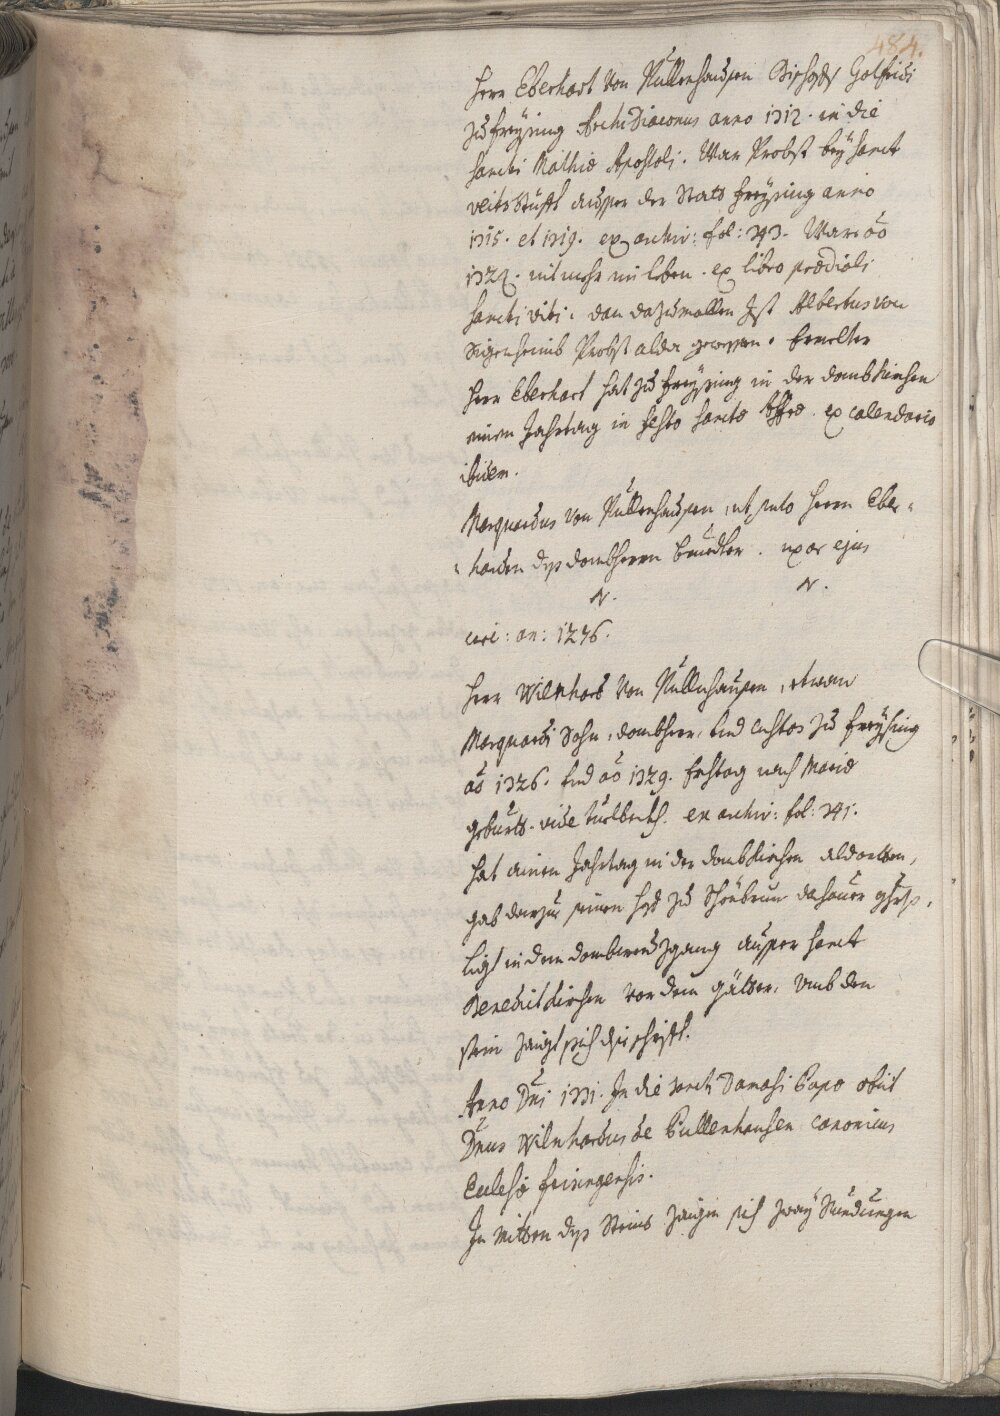 484.
Herr Eberhart von Püllenhausen Bischofs Gotfridi
zu Freÿsing ArchiDiaconus anno 1312. in die
sancti Mathiæ Apostoli. War Probst beÿ sanct
Veits Stüfft ausser der Statt Freÿsing anno
1315. et 1319. ex archiv: fol: 343. Ware ao
1322. nit mehr im leben. ex libro prædiali
sancti viti. dan dazumallen Ist Albertus von
Sigenheimb Probst alda gewessen. Ermelter
Herr Eberhart hat zu Freÿsing in der dombkirchen
einen Jahrtag in festo sanctæ Affræ. ex calendario
ibidem.
Marquardus von Püllenhausen, ut puto Herrn Eber-
harden dess dombherrn Bruedter. uxor ejus
N. N.
vixi: an: 1276.
Herr Wilnhard von Püllnhausen, etwan
Marquardi Sohn, dombherr, und custos zu Freÿsing
ao 1326. und ao 1329. Erchtag nach Mariæ
geburts. vide Türlbech. ex archiv: fol: 341.
hat ainen Jahrtag in der dombkirchen aldorten,
gab darzue seinen hof zu Schönbrun dahauer ghrts,
ligt in dem dombcreuzgang ausser sanct
Benedictkirchen vor dem gätter, umb den
stein zaigt sich die schrifft.
Anno Dni 1331. In die sancti Damasi Papæ obiit
Dnus Wilnhardus de Pullenhausen canonicus
Ecclesiæ frisingensis.
In mitten dess Steins zaigen sich zwaÿ Rundungen